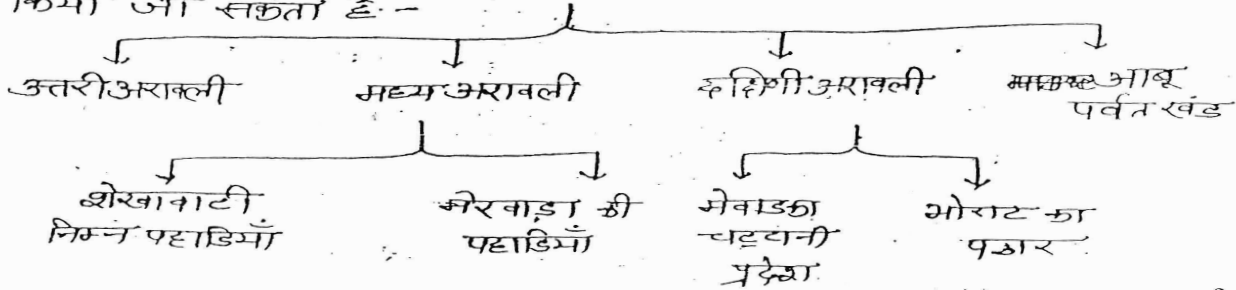 किया जा सकता है:-
उत्तरी अरावली
मध्य अरावली
दक्षिणी अरावली
आबू
पर्वत खंड
शेखावाटी
निम्न पहाडियाँ
मेरवाड़ा की
पहाडियाँ
मेवाडका
चट्टानी
प्रदेश
भोराट का
पठार